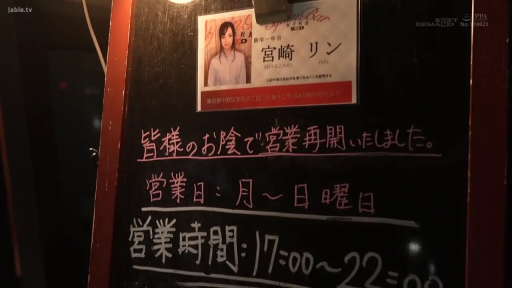 Jable.tv
PPA
新卒一年目
宮崎 リン
MIYAZAKI
RIN
皆様のお陰で営業再開いたしました。
営業日：月〜日曜日
営業時間：17:00〜22:00